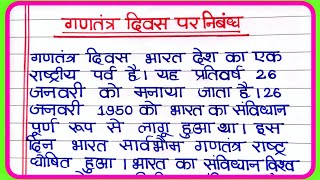 गणतंत्र दिवस पर निबंध
गणतंत्र दिवस भारत देश का एक
राष्ट्रीय पर्व है। यह प्रतिवर्ष 26
जनवरी को मनाया जाता है।26
जनवरी 1950 को भारत का संविधान
पूर्ण रूप से लागू हुआ था। इस
दिन भारत सार्वभौम गणतंत्र राष्ट्र
घोषित हुआ। भारत का संविधान विश्व